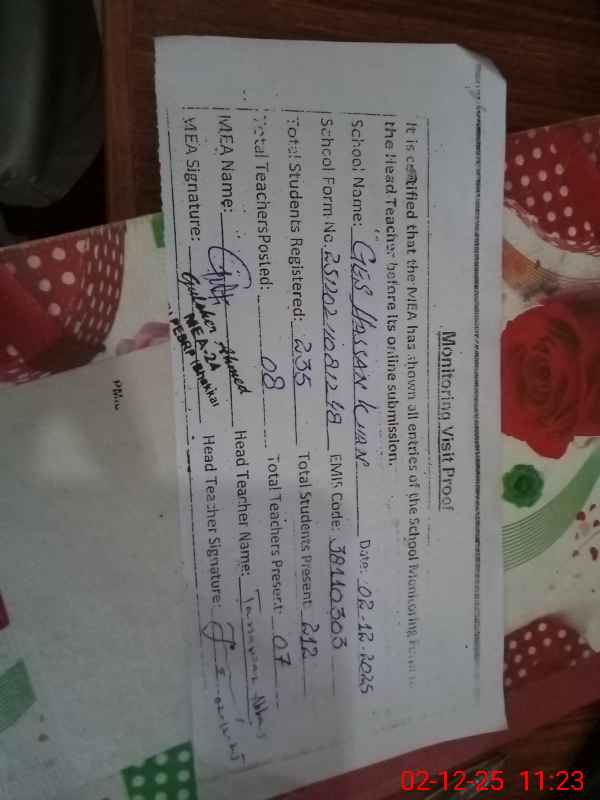 Monitoring Visit Proof
It is certified that the MEA has shown all entries of the School Monitoring Form to
the Head Teacher before its online submission.
School Name: GES HASSAN KHAN Date: 02-12-2025
School Form No. EMIS Code: 38110303
Total Students Registered: 235 Total Students Present 212
Total Teachers Posted: 08 Total Teachers Present: 07
MEA Name: Head Teacher Name:
MEA Signature: Ahmed Head Teacher Signature:
MEA-2A
02-12-25 11:23